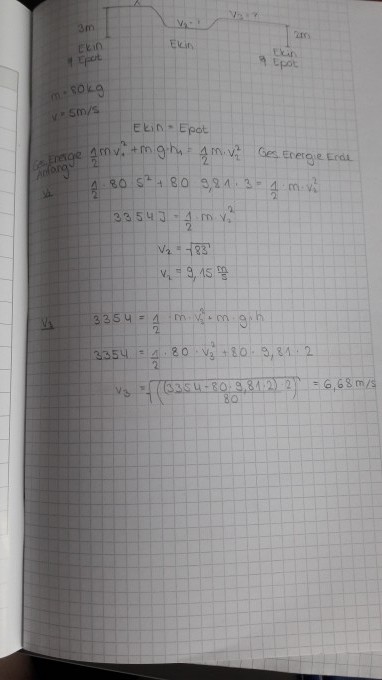 3m
V₂ = ?
V₃ = ?
2m
Ekin
+ Epot
Ekin
Ekin
+ Epot
m = 80kg
v = 5m/s
Ekin = Epot
Ges. Energie Anfang 1/2 m v₁² + m g · h₁ = 1/2 m · v₂² Ges. Energie Ende
1/2 · 80 · 5² + 80 · 9,81 · 3 = 1/2 · m · v₂²
3354 J = 1/2 · m · v₂²
v₂ = √83
v₂ = 9,15 m/s
v₃ 3354 = 1/2 · m · v₃² + m · g · h
3354 = 1/2 · 80 · v₃² + 80 · 9,81 · 2
v₃ = √(((3354 - 80 · 9,81 · 2) · 2) / 80) = 6,68 m/s